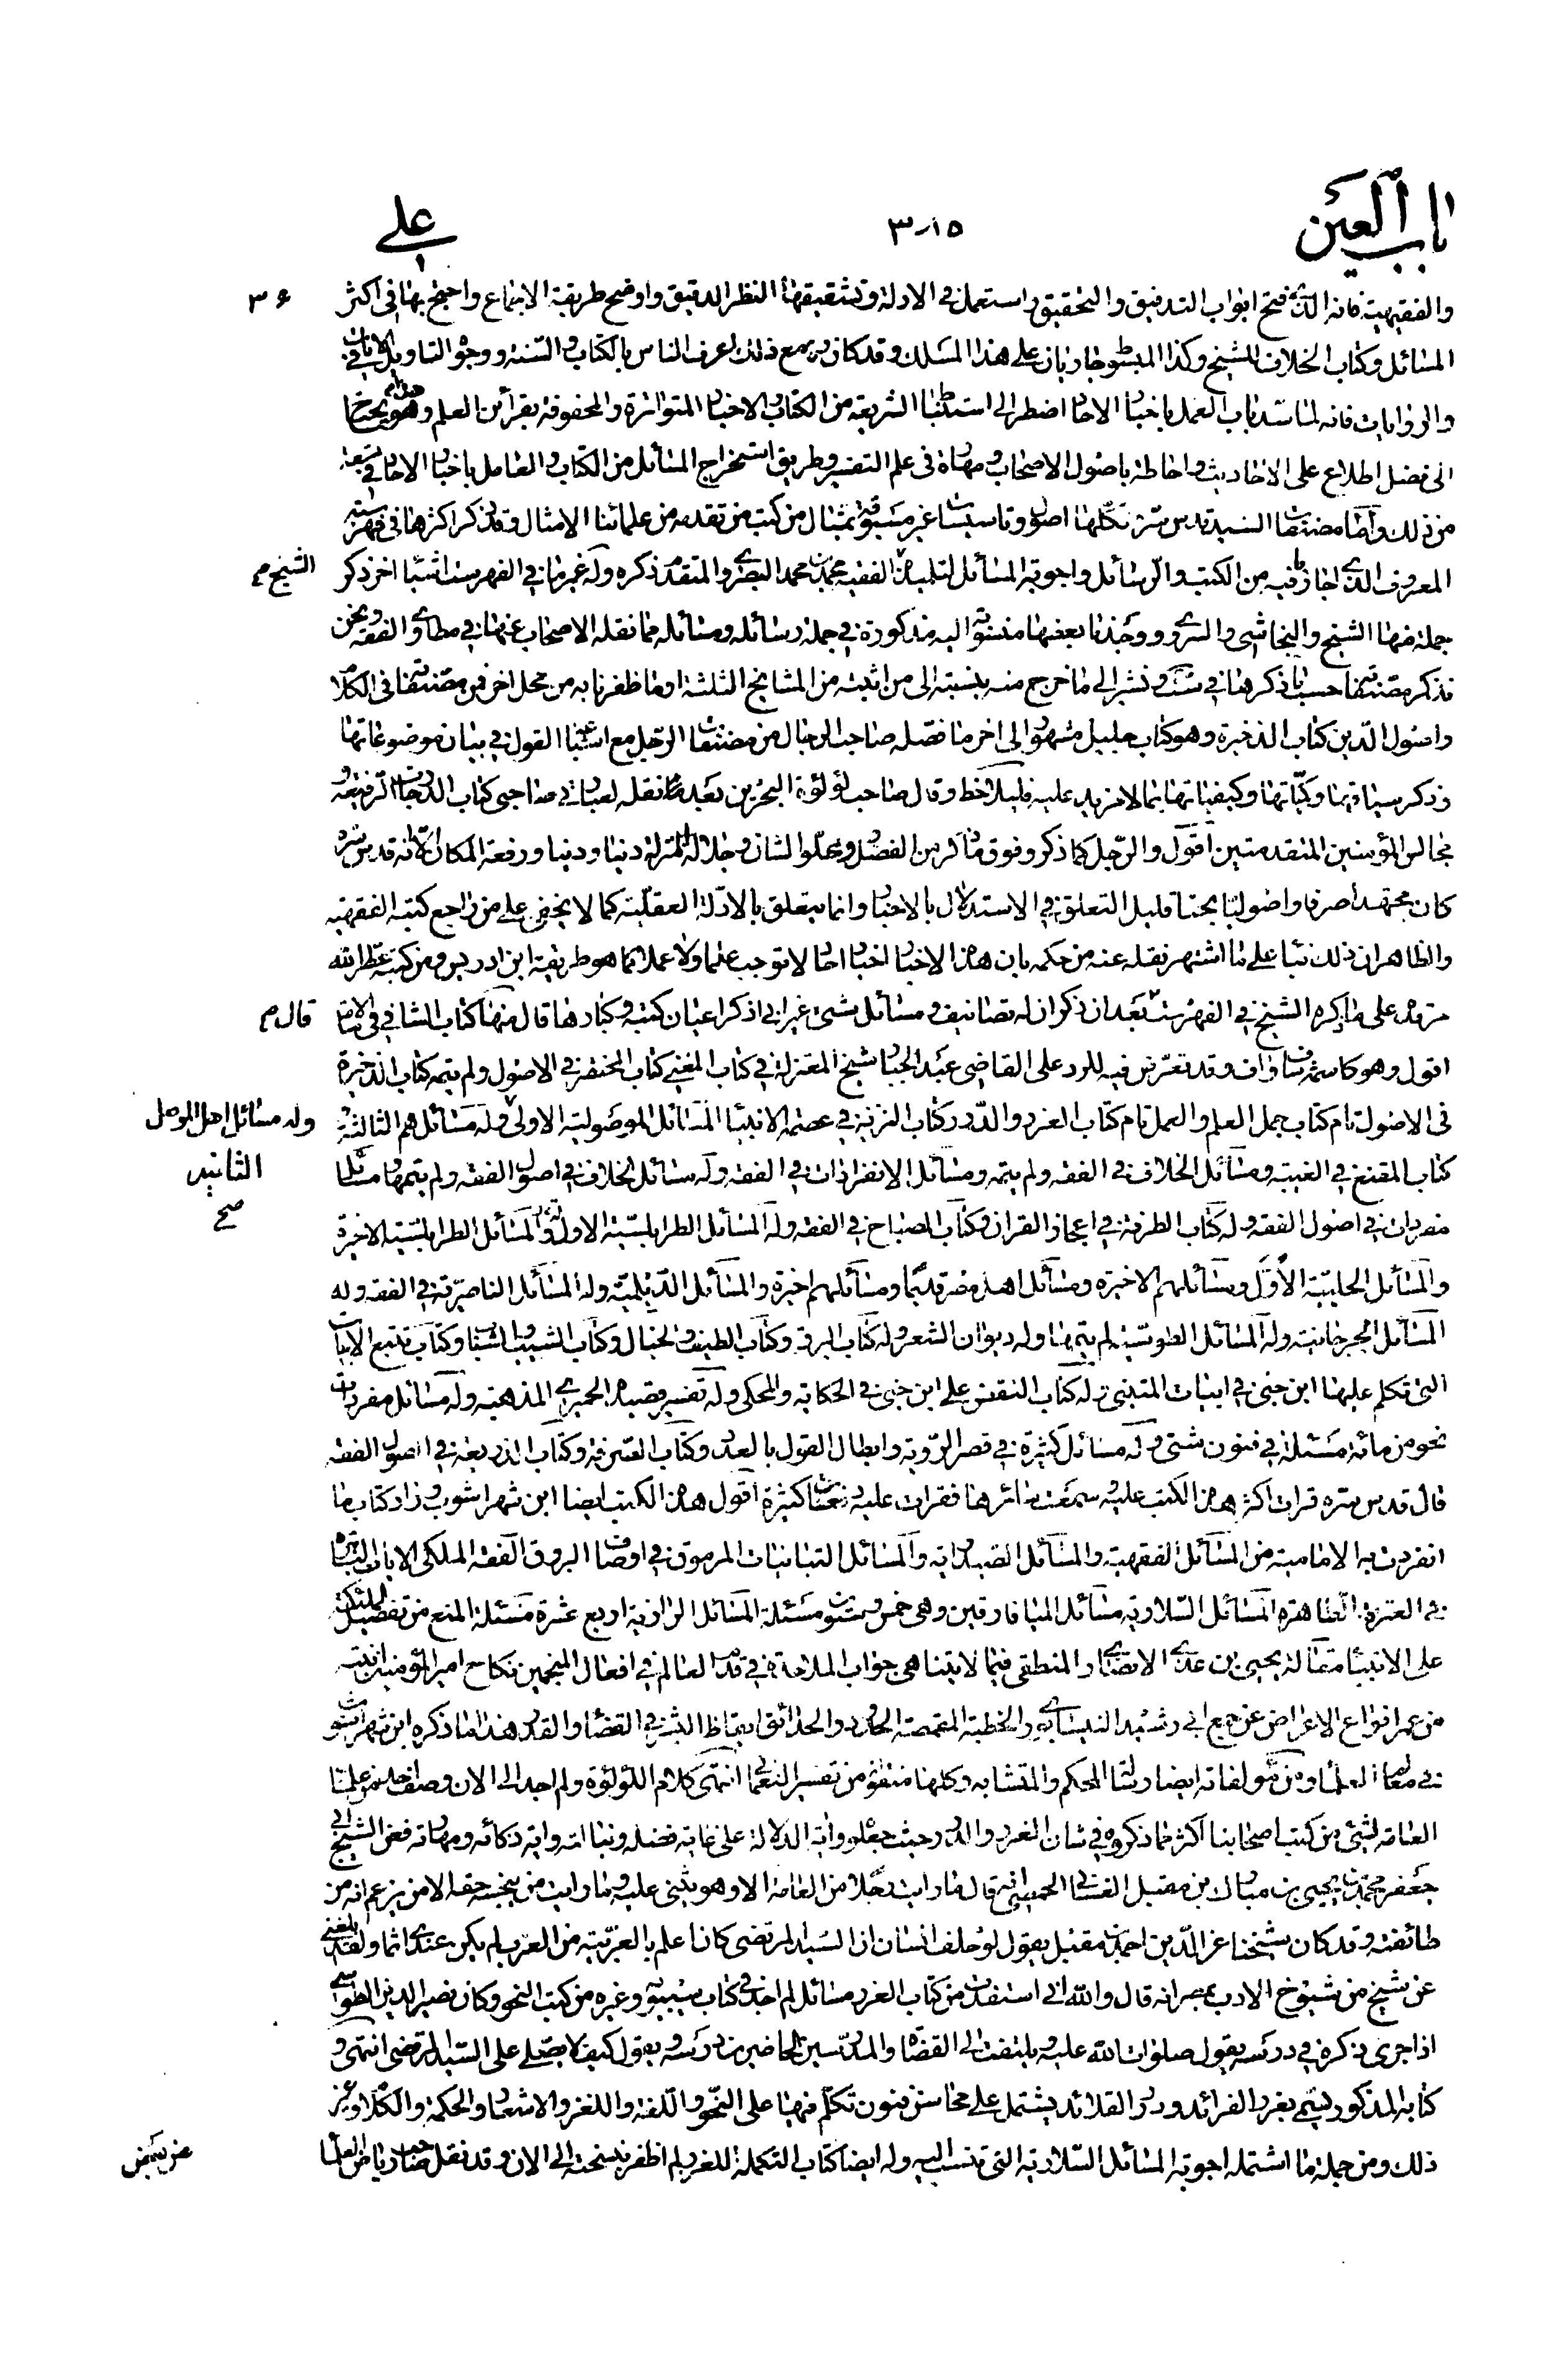 باب العين
٣١٥
علي
٣٦
والفقهية فانه الذي فتح ابواب التدقيق والتحقيق واستعمل في الادلة وتشقيقها النظر الدقيق واوضح طريقة الاجماع واحتج بها في اكثر
المسائل وكتاب الخلاف للشيخ وكذا المبسوط جاريان على هذا المسلك وقد كان ره مع ذلك اعرف الناس بالكتاب والسنة ووجوه التاويل في الايات
والروايات فانه لما سد باب العمل باخبار الاحاد اضطر الى استنباط الشريعة من الكتاب والاخبار المتواترة والمحفوفة بقرائن العلم وهو يحتاج
الى فضل اطلاع على الاحاديث واحاطة باصول الاصحاب ومهارة في علم التفسير وطريق استخراج المسائل من الكتاب والعامل باخبار الاحاد في سعة
من ذلك واما مصنفات السيد قدس سره فكلها اصول وتاسيسات غير مسبوقة بمثال من كتب من تقدمه من علمائنا الامثال وقد ذكر اكثرها في فهرسته
المعروف الذي اجاز فيه من الكتب والرسائل واجوبة المسائل لتلميذه الفقيه محمد بن محمد البصروي المتقدم ذكره وله غير ما في الفهرست اشياء اخر ذكر
الشيخ م
جملة منها الشيخ والنجاشي والسروي ووجدنا بعضها منسوبة اليه مذكورة في جملة رسائله ومسائله مما نقله الاصحاب عنها في مطاوي الفقه ونحن
نذكر مصنفاتها حسبما ذكرها في ونشير الى ما خرج منه بنسبته الى من اثبته من المشايخ الثلثة او ما ظفرنا به من محل اخر فمن مصنفاتها في الكلام
واصول الدين كتاب الذخيرة وهو كتاب جليل مشهور الى اخر ما فصله صاحب الرجال من مصنفات الرجل مع اشباع القول في بيان موضوعاتها
وذكر وكمياتها وكيفياتها بما لا مزيد عليه فليلاحظ وقال صاحب لؤلؤة البحرين بعد ما نقله لعبارتي صاحبي كتاب الدرجات الرفيعة و
مجالس المؤمنين المتقدمتين اقول والرجل كما ذكر وفوق ما ذكر من الفضل وعلو الشان وجلالة المنزلة دنيا ودينا ورفعة المكان الا انه قدس سره
كان مجتهدا صرفا واصوليا بحتا قليل التعلق في الاستدلال بالاخبار وانما يتعلق بالادلة العقلية كما لا يخفى على من راجع كتبه الفقهية
والظاهر ان ذلك بناء على ما اشتهر نقله عنه من حكمه بان هذه الاخبار اخبار احاد لا توجب علما ولا عملا كما هو طريقة ابن ادريس ومن كتبه عطر الله
مرقده على ما ذكره الشيخ في الفهرست بعد ان ذكر ان له تصانيف ومسائل شتى غير اني اذكر اعيان كتبه وكبارها قال منها كتاب الشافي في الامامة
قال م
اقول وهو كاسمه شاف واف وقد تعرض فيه للرد على القاضي عبد الجبار شيخ المعتزلة في كتاب المغني كتاب الملخص في الاصول ولم يتمه كتاب الذخيرة
في الاصول تام كتاب جمل العلم والعمل تام كتاب الغرر والدرر كتاب التنزيه في عصمة الانبياء المسائل الموصولية الاولى وله مسائلهم الثالثة
وله مسائل اهل الموصل
الثانيه
صح
كتاب المقنع في الغيبة ومسائل الخلاف في الفقه ولم يتمه ومسائل الانفرادات في الفقه وله مسائل الخلاف في اصول الفقه ولم يتمها وله مسائل
مفردات في اصول الفقه وله كتاب الصرفة في اعجاز القران وكتاب المصباح في الفقه وله المسائل الطرابلسية الاولى والمسائل الطرابلسية الاخيرة
والمسائل الحلبية الاولى ومسائلهم الاخيرة ومسائل اهل مصر قديما ومسائلهم اخيرة والمسائل الديلمية وله المسائل الناصرية في الفقه وله
المسائل الجرجانية وله المسائل الطوسية لم يتمها وله ديوان الشعر وله كتاب البرق وكتاب الطيف والخيال وكتاب الشيب والشباب وكتاب تتبع الابيات
التي تكلم عليها ابن جني في ابيات المتنبي وله كتاب النقض على ابن جني في الحكاية والمحكي وله تفسير قصيدة الحميري المذهبة وله مسائل مفردات
نحو من مائة مسئلة في فنون شتى وله مسائل كثيرة في نصر الرؤية وابطال القول بالعدد وكتاب الصرفة وكتاب الذريعة في اصول الفقه
قال قدس سره قرات اكثر هذه الكتب عليه وسمعت سائرها فقرات عليه دفعات كثيرة اقول هذه الكتب ايضا ابن شهراشوب وزاد كتاب ما
انفردت به الامامية من المسائل الفقهية والمسائل الصيداوية والمسائل التبانيات المرموق في اوصاف البروق الفقه الملكي الايات الباهرة
في العترة الطاهرة المسائل السلارية مسائل الميافارقين وهي خمس وستون مسئلة المسائل الرازية اربع عشرة مسئلة المنع من تفضيل الملئكة
على الانبياء متقالة يحيى بن عدي الانصاري المنطقي فيما لا يتناهى جواب الملاحدة في قدم العالم في افعال المنجمين نكاح امير المؤمنين ابنته
من عمر انواع الاعراض عن جمع ابي رشيد النيسابوري والخطبة المقمصة الحدود والحدائق ايقاظ البشر في القضاء والقدر هذا ما ذكره ابن شهراشوب
في معالم العلماء ومن مؤلفاته ايضا رسالة المحكم والمتشابه وكلها منقولة من تفسير النعماني انتهى كلام اللؤلؤة ولم اجد الى الان وصف احد من علماء
العامة لشيء من كتب اصحابنا اكثر مما ذكروه في شان الغرر والدرر حيث جعلوه اية الدلالة على غاية فضله ونباهته واية ذكائه ومهارته فعن الشيخ ابي
جعفر محمد بن يحيى بن مبارك بن مقبل الغساني الحمصي انه قال ما رايت رجلا من العامة الا وهو يثني عليه وما رايت من يبخسه حقه الا من يزعم انه من
طائفته وقد كان شيخنا عز الدين احمد بن مقبل يقول لو حلف انسان ان السيد المرتضى كان اعلم بالعربية من العرب لم يكن عندي اثما ولقد بلغني
عن شيخ من شيوخ الادب بمصر انه قال والله اني استفدت من كتاب الغرر مسائل لم اجدها في كتاب سيبويه وغيره من كتب النحو وكان نصير الدين الطوسي
اذا جرى ذكره في درسه يقول صلوات الله عليه ويلتفت الى القضاة والمدرسين الحاضرين درسه ويقول كيف لا يصلى على السيد المرتضى انتهى و
كتابه المذكور يسمى بغرر الفرائد ودرر القلائد يشتمل على محاسن فنون تكلم فيها على النحو واللغة واللغز والاشعار والحكمة والكلام وغير
ذلك ومن جملة ما اشتمله اجوبة المسائل السلارية التي تنسب اليه وله ايضا كتاب التكملة للغرر لم اظفر بنسخته الى الان وقد نقل صاحب رياض العلماء
عن بعض